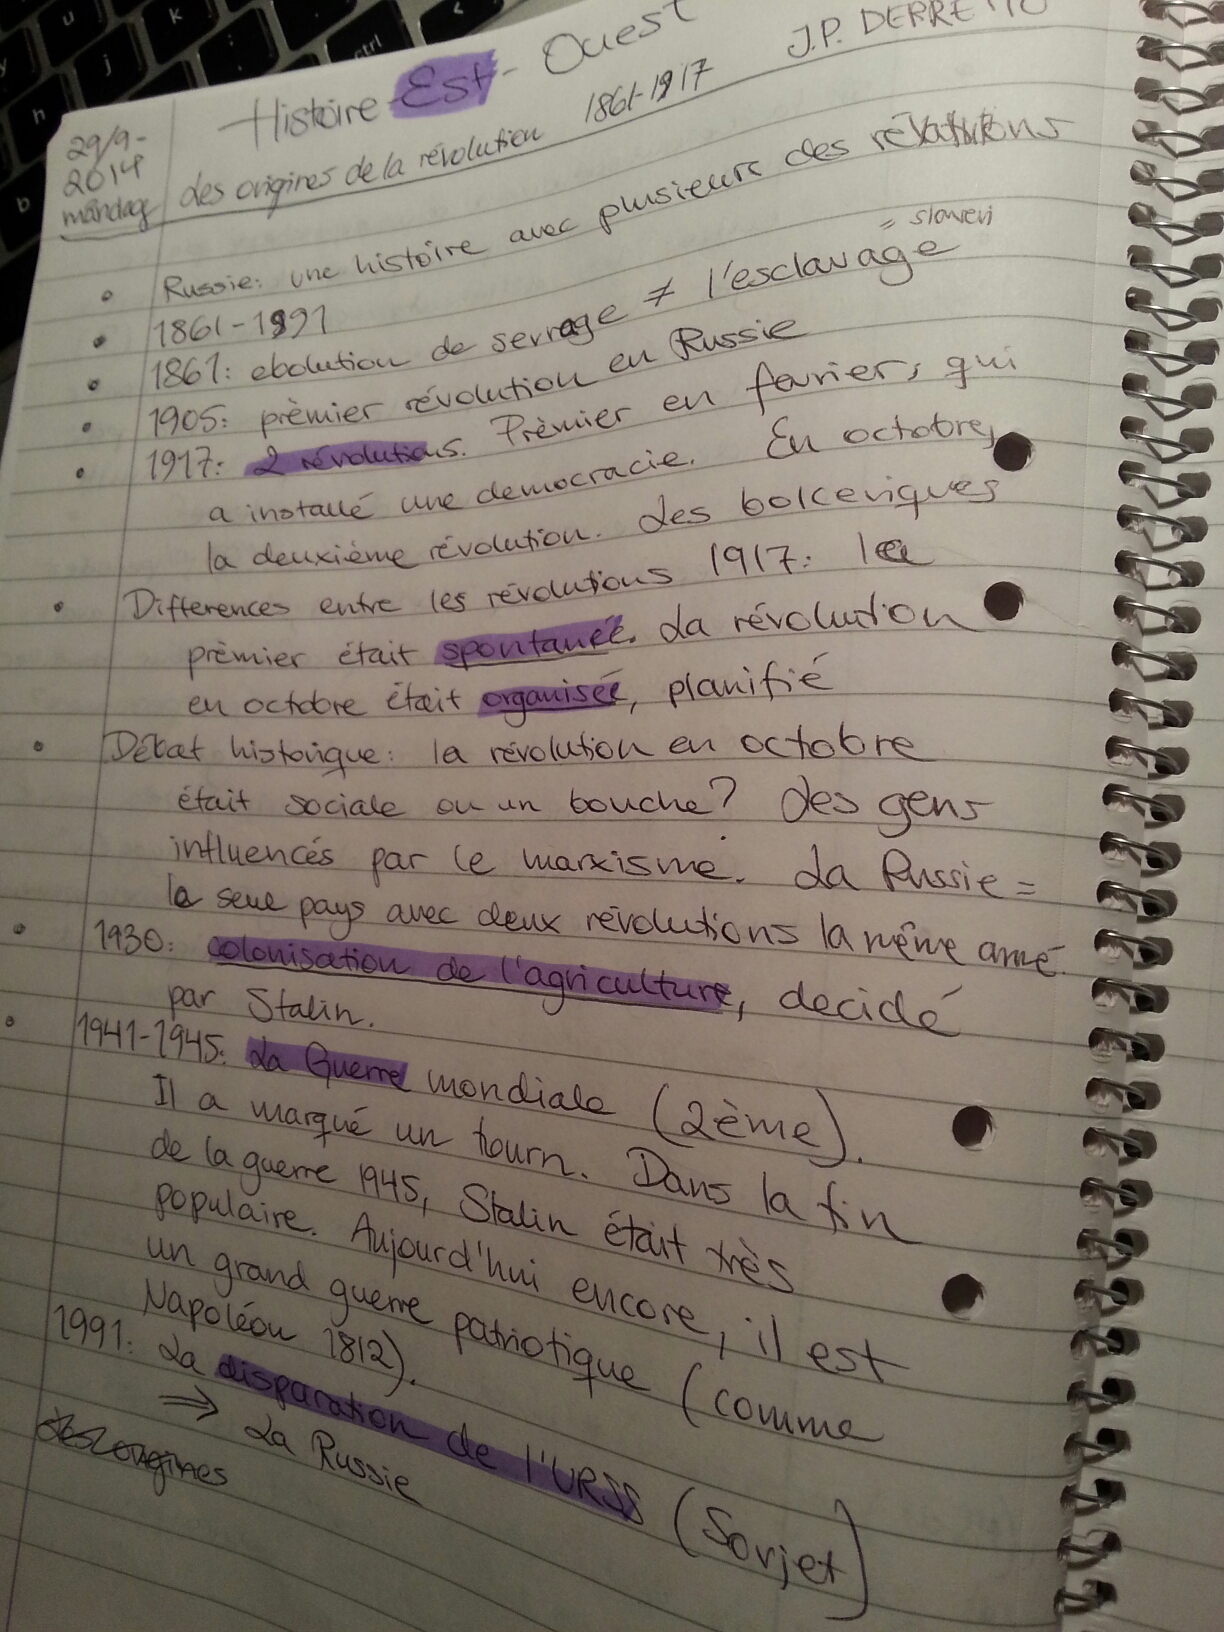 Histoire Est-Ouest
J.P. DERRETTO
29/9-
2014
måndag
des origines de la révolution 1861-1917
Russie: une histoire avec plusieurs des révolutions
1861-1991
= slaveri
1861: ebolution de servage ≠ l'esclavage
1905: prèmier révolution en Russie
1917: 2 révolutions. Prèmier en fevrier, qui
a installé une democracie. En octobre,
la deuxième révolution. des bolceviques
Differences entre les révolutions 1917: la
prèmier était spontaneé. La révolution
en octobre était organiseé, planifié
Débat historique: la révolution en octobre
était sociale ou un bouche? des gens
influencés par le marxisme. La Russie =
la seul pays avec deux révolutions la même anné.
1930: colonisation de l'agriculture, decidé
par Stalin.
1941-1945: La Guerre mondiale (2ème).
Il a marqué un tourn. Dans la fin
de la guerre 1945, Stalin était très
populaire. Aujourd'hui encore, il est
un grand guerre patriotique (comme
Napoléon 1812).
1991: La disparation de l'URSS (Sovjet)
⇒ La Russie
des origines